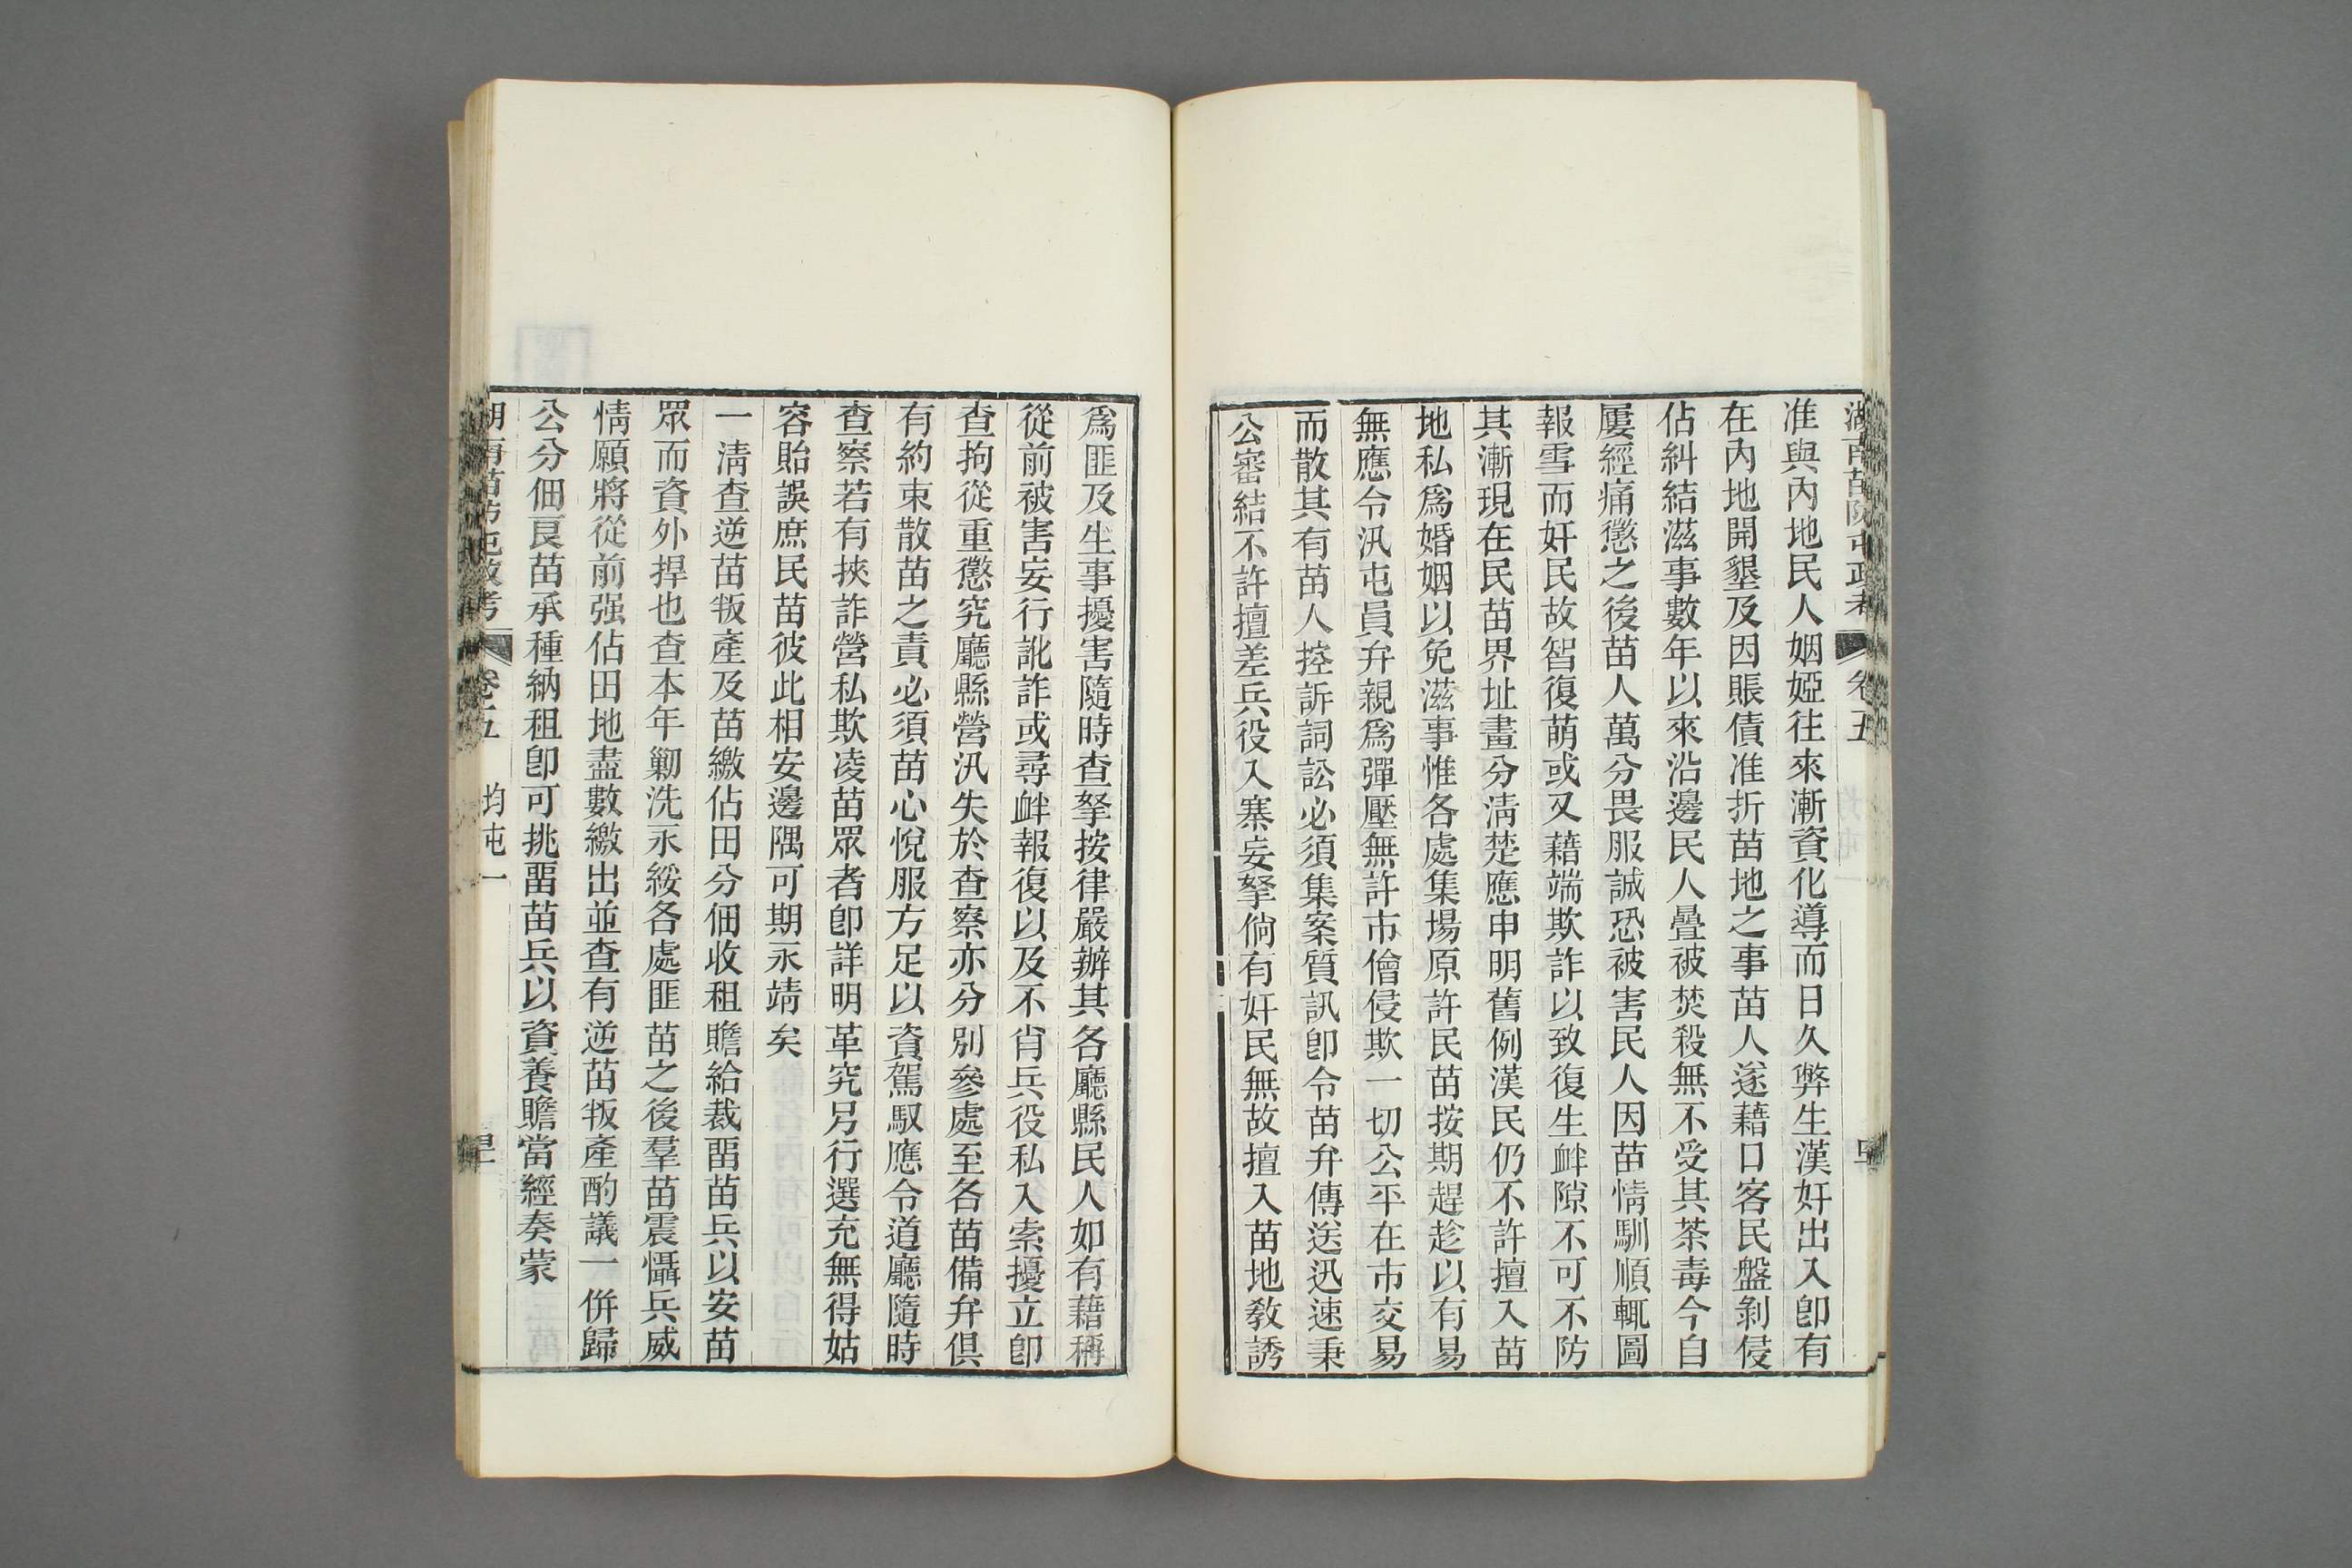 湖南苗防屯政考 卷五
准與內地民人姻婭往來漸資化導而日久弊生漢奸出入卽有
在內地開墾及因賬債准折苗地之事苗人遂藉口客民盤剝侵
佔糾結滋事數年以來沿邊民人疊被焚殺無不受其荼毒今自
屢經痛懲之後苗人萬分畏服誠恐被害民人因苗情馴順輒圖
報雪而奸民故智復萌或又藉端欺詐以致復生衅隙不可不防
其漸現在民苗界址畫分淸楚應申明舊例漢民仍不許擅入苗
地私爲婚姻以免滋事惟各處集場原許民苗按期趕趁以有易
無應令汛屯員弁親爲彈壓無許市儈侵欺一切公平在市交易
而散其有苗人控訴詞訟必須集案質訊卽令苗弁傳送迅速秉
公審結不許擅差兵役入寨妄拏倘有奸民無故擅入苗地教誘
爲匪及生事擾害隨時查拏按律嚴辦其各廳縣民人如有藉稱
從前被害妄行訛詐或尋衅報復以及不肖兵役私入索擾立卽
查拘從重懲究廳縣營汛失於查察亦分別參處至各苗備弁俱
有約束散苗之責必須苗心悅服方足以資駕馭應令道廳隨時
查察若有挾詐營私欺凌苗眾者卽詳明革究另行選充無得姑
容貽誤庶民苗彼此相安邊隅可期永靖矣
一淸查逆苗叛產及苗繳佔田分佃收租贍給裁畱苗兵以安苗
眾而資外捍也查本年勦洗永綏各處匪苗之後羣苗震懾兵威
情願將從前强佔田地盡數繳出並查有逆苗叛產酌議一併歸
公分佃良苗承種納租卽可挑畱苗兵以資養贍當經奏蒙
湖南苗防屯政考 卷五 均屯一